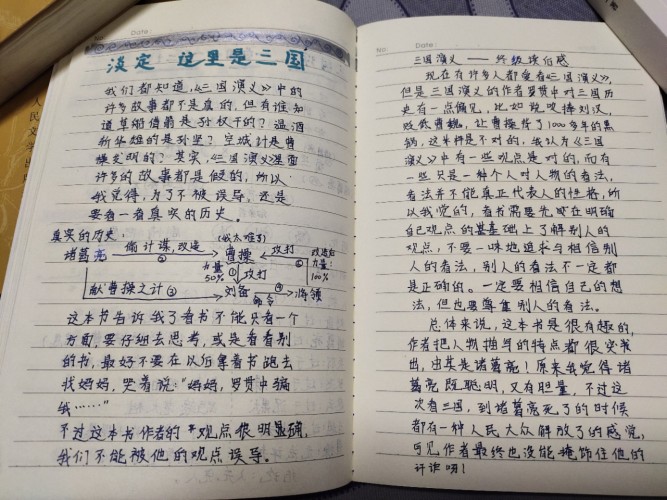 Date:
淡定 这里是三国
我们都知道,《三国演义》中的
许多故事都不是真的,但有谁知
道草船借箭是孙权干的?温酒
斩华雄的是孙坚?空城计是曹
操发明的?其实,《三国演义》里面
许多的故事都是假的,所以
我觉得,为了不被误导,还是
要看一看真实的历史。
真实的历史:
(我太难了)
诸葛亮 偷计谋,改造 ② 曹操 攻打 ⑥ 改造后力量:100%
力量50% ① 攻打
献曹操之计 ③ 刘备 命令 将领
这本书告诉我了看书不能只看一个
方面,要仔细去思考,或是看看别
的书,最好不要在以后拿着书跑去
找妈妈,哭着说:“妈妈,罗贯中骗
我……”
不过这本书作者的观点很明显确,
我们不能被他的观点误导。
No.
Date:
三国演义——终级读后感
现在有许多人都爱看《三国演义》,
但是三国演义的作者罗贯中对三国历
史有一点偏见,比如说吹捧刘汉,
贬低曹魏,让曹操背了1000多年的黑
锅,这样是不对的,我认为《三国
演义》中有一些观点是对的,而有
一些只是一种个人对人物的看法,
看法并不能真正代表人的性格,所
以我觉的,看书需要先
自己观点的基础上了解别人的
观点,不要一味地追求与相信别
人的看法,别人的看法不一定都
是正确的。一定要相信自己的想
法,但也要尊重别人的看法。
总体来说,这本书是很有趣的,
作者把人物描写的特点都很突
出,尤其是诸葛亮!原来我觉得诸
葛亮既聪明,又有胆量,不过这
次看三国,到诸葛亮死了的时候
都有一种人民大众解放了的感觉,
可见作者最终也没能掩饰住他的
奸诈呀!